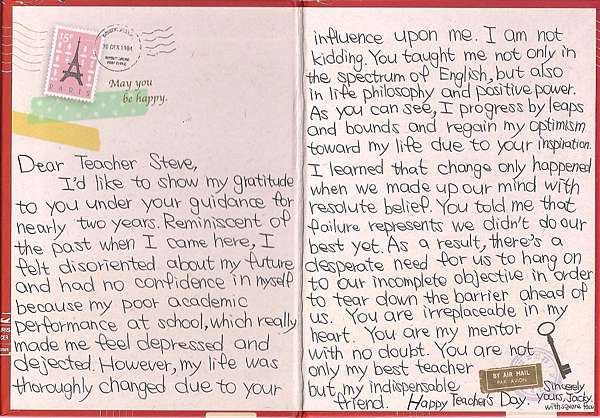 15c
PARIS
20 DEC 1984
May you
be happy.
Dear Teacher Steve,
I'd like to show my gratitude
to you under your guidance for
nearly two years. Reminiscent of
the past when I came here, I
felt disoriented about my future
and had no confidence in myself
because my poor academic
performance at school, which really
made me feel depressed and
dejected. However, my life was
thoroughly changed due to your
influence upon me. I am not
kidding. You taught me not only in
the spectrum of English, but also
in life philosophy and positive power.
As you can see, I progress by leaps
and bounds and regain my optimism
toward my life due to your inspiration.
I learned that change only happened
when we made up our mind with
resolute belief. You told me that
failure represents we didn't do our
best yet. As a result, there's a
desperate need for us to hang on
to our incomplete objective in order
to tear down the barrier ahead of
us. You are irreplaceable in my
heart. You are my mentor
with no doubt. You are not
only my best teacher
but my indispensable
friend. Happy Teacher's Day.
BY AIR MAIL
PAR AVION
Sincerely
yours, Jacky
with square face